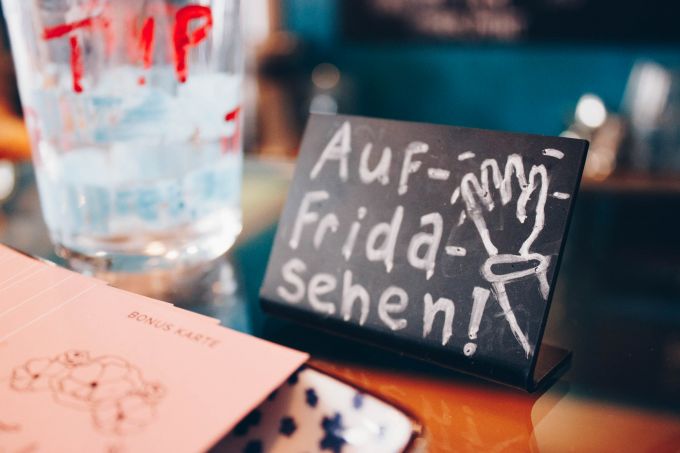 TIP
Auf-
Frida-
sehen!
BONUS KARTE